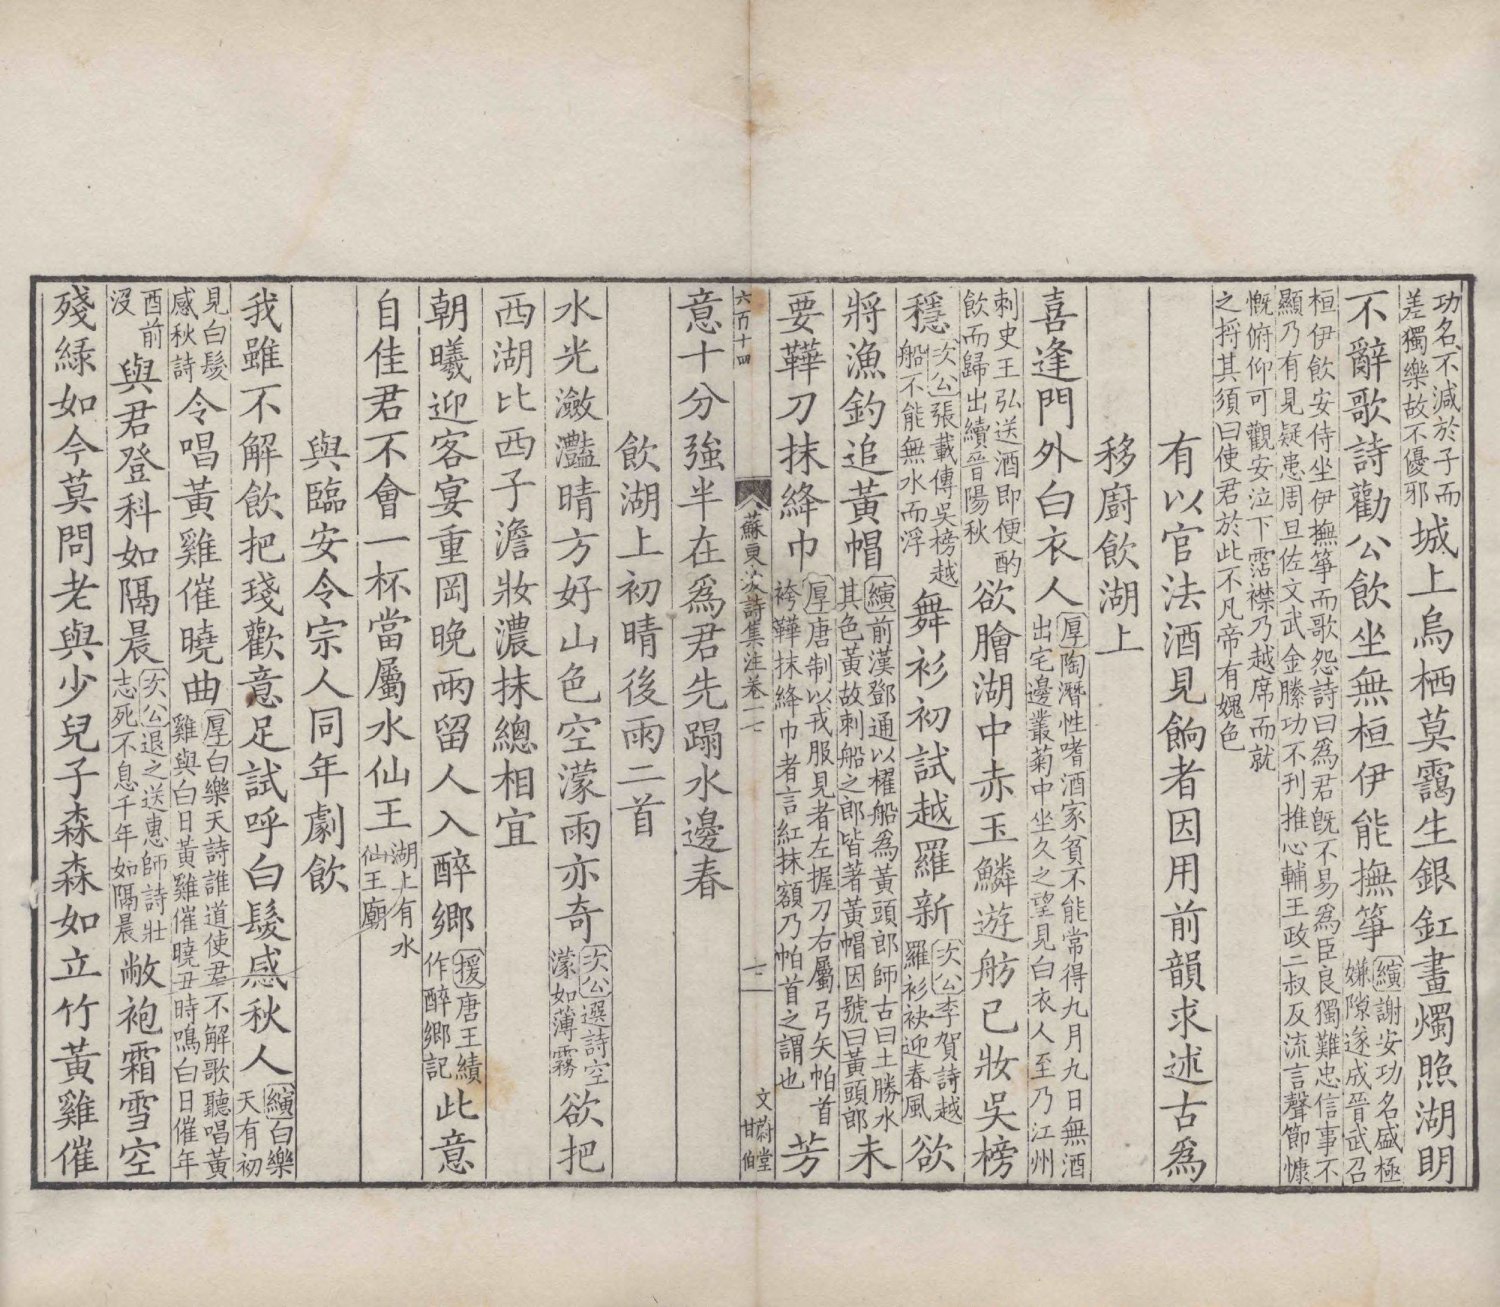 功名不減於子而差獨樂故不優邪城上烏栖莫靄生銀釭畫燭照湖明
不辭歌詩勸公飲坐無桓伊能撫箏縯謝安功名盛極嫌隙遂成晉武召
桓伊飲安侍坐伊撫箏而歌怨詩曰爲君既不易爲臣良獨難忠信事不顯乃有見疑患周旦佐文武金縢功不刊推心輔王政二叔反流言聲節慷
慨俯仰可觀安泣下霑襟乃越席而就之捋其須曰使君於此不凡帝有媿色
有以官法酒見餉者因用前韻求述古爲
移廚飲湖上
喜逢門外白衣人厚陶潛性嗜酒家貧不能常得九月九日無酒出宅邊叢菊中坐久之望見白衣人至乃江州
刺史王弘送酒即便酌飲而歸出續晉陽秋欲膾湖中赤玉鱗遊舫已妝吳榜
穩次公張載傳吳榜越船不能無水而浮舞衫初試越羅新次公李賀詩越羅衫袂迎春風欲
將漁釣追黃帽縯前漢鄧通以櫂船爲黃頭郎師古曰土勝水其色黃故刺船之郎皆著黃帽因號曰黃頭郎未
要鞾刀抹絳巾厚唐制以戎服見者左握刀右屬弓矢帕首袴鞾抹絳巾者言紅抹額乃帕首之謂也芳
六百十四
蘇東坡詩集注卷二七
文蔚堂
甘伯
意十分強半在爲君先蹋水邊春
飲湖上初晴後雨二首
水光瀲灩晴方好山色空濛雨亦奇次公選詩空濛如薄霧欲把
西湖比西子澹妝濃抹總相宜
朝曦迎客宴重岡晚雨留人入醉鄉援唐王績作醉鄉記此意
自佳君不會一杯當屬水仙王湖上有水仙王廟
與臨安令宗人同年劇飲
我雖不解飲把琖歡意足試呼白髮感秋人縯白樂天有初
見白髮感秋詩令唱黃雞催曉曲厚白樂天詩誰道使君不解歌聽唱黃雞與白日黃雞催曉丑時鳴白日催年
酉前沒與君登科如隔晨次公退之送惠師詩壯志死不息千年如隔晨敝袍霜雪空
殘綠如今莫問老與少兒子森森如立竹黃雞催